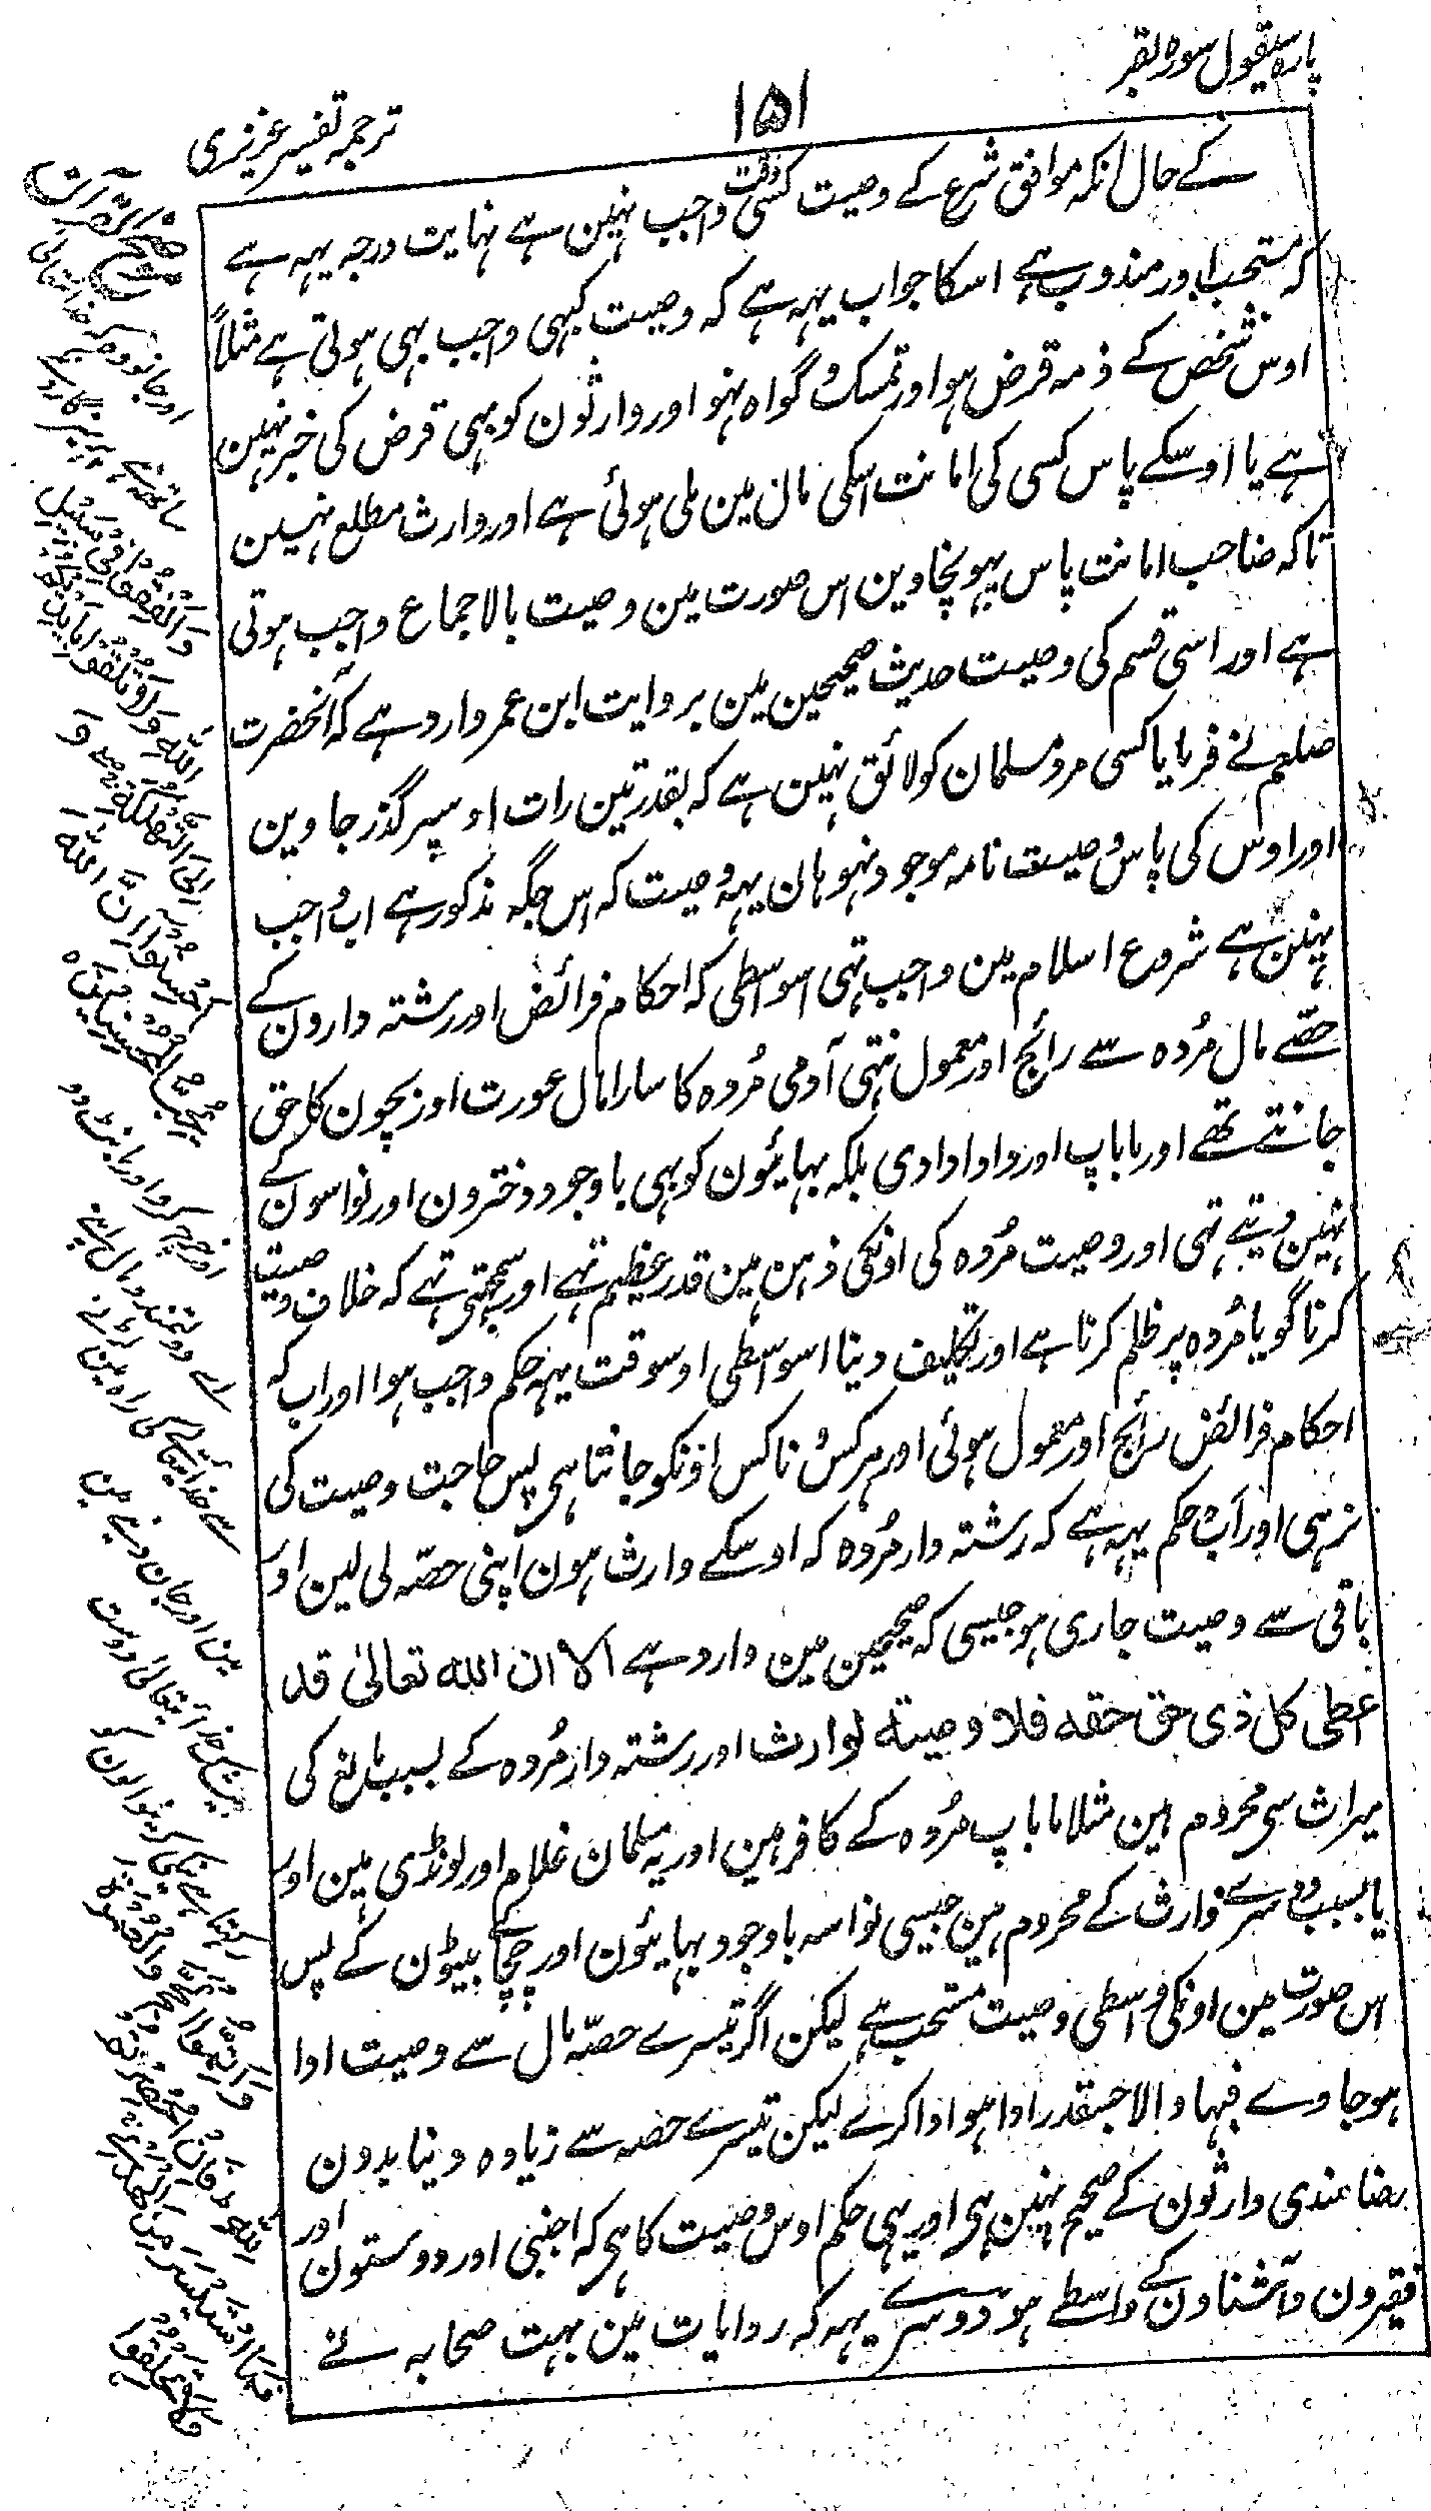 پارہ سیقول سورہ بقر
۱۵۱
ترجمہ تفسیر عزیزی
کے حال انکہ موافق شرع کے وصیت کسی وقت واجب نہین ہے نہایت درجہ یہہ ہے
کہ مستحب اور مندوب ہے اسکا جواب یہہ ہے کہ وصیت کبہی واجب بہی ہوتی ہے مثلاً
اوس شخص کے ذمہ قرض ہو اور تمسک و گواہ نہو اور وارثون کو بہی قرض کی خبر نہین
ہے یا اوسکے پاس کسی کی امانت اسکی مال مین ملی ہوئی ہے اور وارث مطلع نہین
تاکہ صاحب امانت پاس پہونچاوین اس صورت مین وصیت بالاجماع واجب ہوتی
ہے اور اسی قسم کی وصیت حدیث صحیحین مین بروایت ابن عمر وارد ہے کہ آنحضرت
صلعم نے فرمایا کسی مرد مسلمان کو لائق نہین ہے کہ بقدر تین رات اوسپر گذر جاوین
اور اوس کی پاس وصیت نامہ موجود نہو ہان یہہ وصیت کہ اس جگہ مذکور ہے اب واجب
نہین ہے شروع اسلام مین واجب تہی اسواسطی کہ احکام فرائض اور رشتہ دارون کے
حصّے مال مُردہ سے رائج اور معمول نتہی آدمی مُردہ کا سارا مال عورت اور بچون کا حق
جانتے تھے اور ماباپ اور دادا دادی بلکہ بہائیون کو بہی باوجود دخترون اور نواسون کے
نہین دیتے تہی اور وصیت مُردہ کی اونکی ذہن مین قدر عظیم تہے اور سمجہتی تہے کہ خلاف وصیت
کرنا گویا مُردہ پر ظلم کرنا ہے اور تکلیف دینا اسواسطی اوسوقت یہہ حکم واجب ہوا اور اب کہ
احکام فرائض رائج اور معمول ہوئی اور ہرکس و ناکس اونکو جانتا ہی پس حاجت وصیت کی
نرہی اور اب حکم یہہ ہے کہ رشتہ دار مُردہ کہ اوسکے وارث ہون اپنی حصّہ لی لین اور
باقی سے وصیت جاری ہو جیسی کہ صحیحین مین وارد ہے الا ان اللہ تعالیٰ قد
اعطی کل ذی حق حقہ فلا وصیتہ لوارث اور رشتہ دار مُردہ کے بسبب مانع کی
میراث سی محروم ہین مثلا ماباپ مُردہ کے کافر ہین اور یہ مسلمان غلام اور لونڈی ہین اور
یا بسبب دوسرے وارث کے محروم ہین جیسی نواسہ باوجود بہائیون اور چچا کے بیٹون کے پس
اس صورت مین اونکی واسطی وصیت مستحب ہے لیکن اگر تیسرے حصّہ مال سے وصیت ادا
ہوجاوے فبہا والا جسقدر ادا ہو ادا کرے لیکن تیسرے حصہ سے زیادہ دینا بدون
رضامندی وارثون کے صحیح نہین ہی اور یہی حکم اوس وصیت کا ہی کہ اجنبی اور دوستون اور
فقیرون و آشناون کے واسطے ہو دوسرے یہہ کہ روایات مین بہت صحابہ نے
اور جانو کہ خدایتعالی
ساتھ ہے پرہیزگارونکے
وَاَنْفِقُوْا فِیْ سَبِیْلِ
اللّٰہِ وَلَا تُلْقُوْا بِاَیْدِیْکُمْ
اِلَی التَّھْلُکَۃِ وَ
اَحْسِنُوْا اِنَّ اللّٰہَ
یُحِبُّ الْمُحْسِنِیْنَ
اور خرچ کرو اور بانٹ دو
اے دولتمندو مال اپنے
خدایتعالے کی راہ مین
مین اور جان
بیشک خدایتعالی دوست
رکہتا ہے نیکی کرنیوالون کو
وَاَتِمُّوا الْحَجَّ وَالْعُمْرَۃَ
لِلّٰہِ فَاِنْ اُحْصِرْتُمْ
فَمَا اسْتَیْسَرَ مِنَ الْھَدْیِ
وَلَا تَحْلِقُوْا